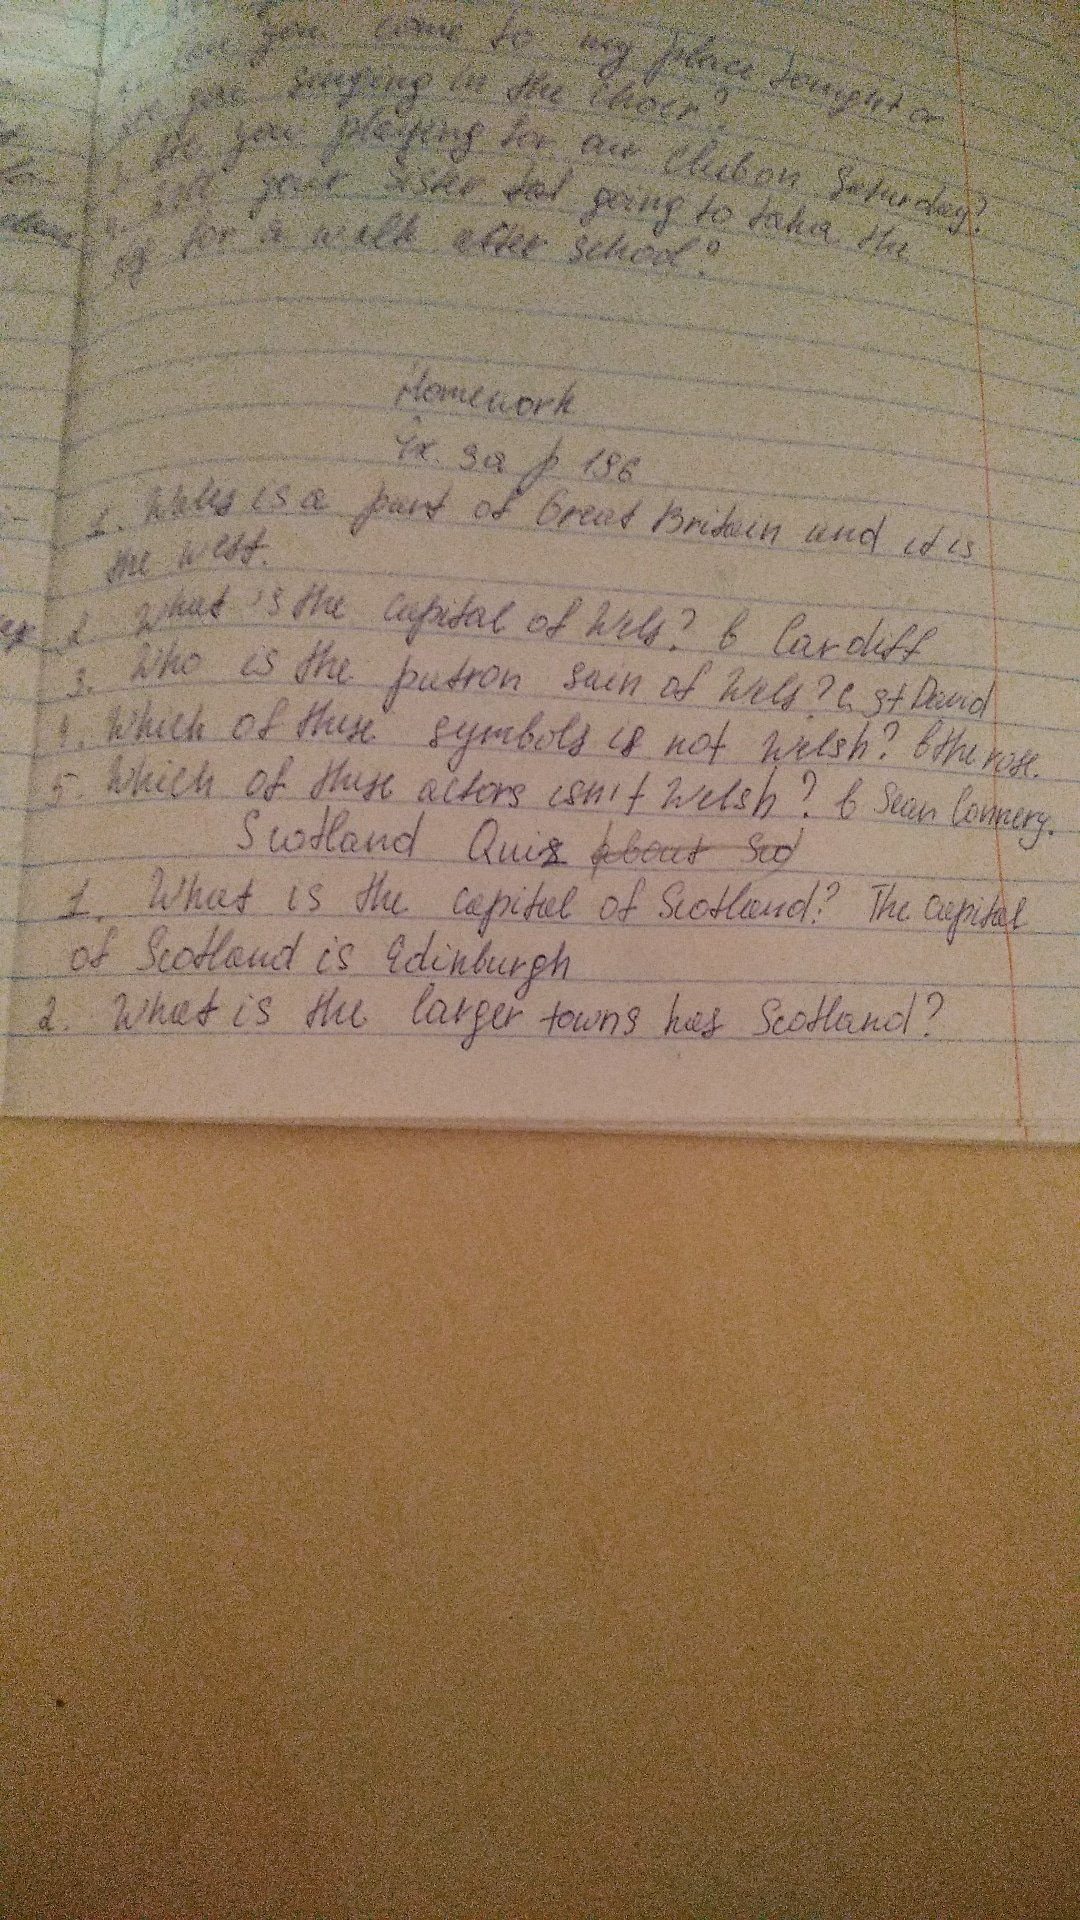 you come to my place tonight or
singing in the choir?
you playing for our club on Saturday?
your sister going to take the
for a walk after school?
Homework
Ex. 9a p 196
1. Wels is a part of Great Britain and it is
the west.
2. What is the capital of Wels? b Cardiff
3. Who is the patron sain of Wels? c St David
4. Which of these symbols is not Welsh? b the rose.
5. Which of these actors isn't Welsh? b Sean Connery.
Scotland Quiz about Scot
1. What is the capital of Scotland? The capital
of Scotland is Edinburgh
2. What is the larger towns has Scotland?